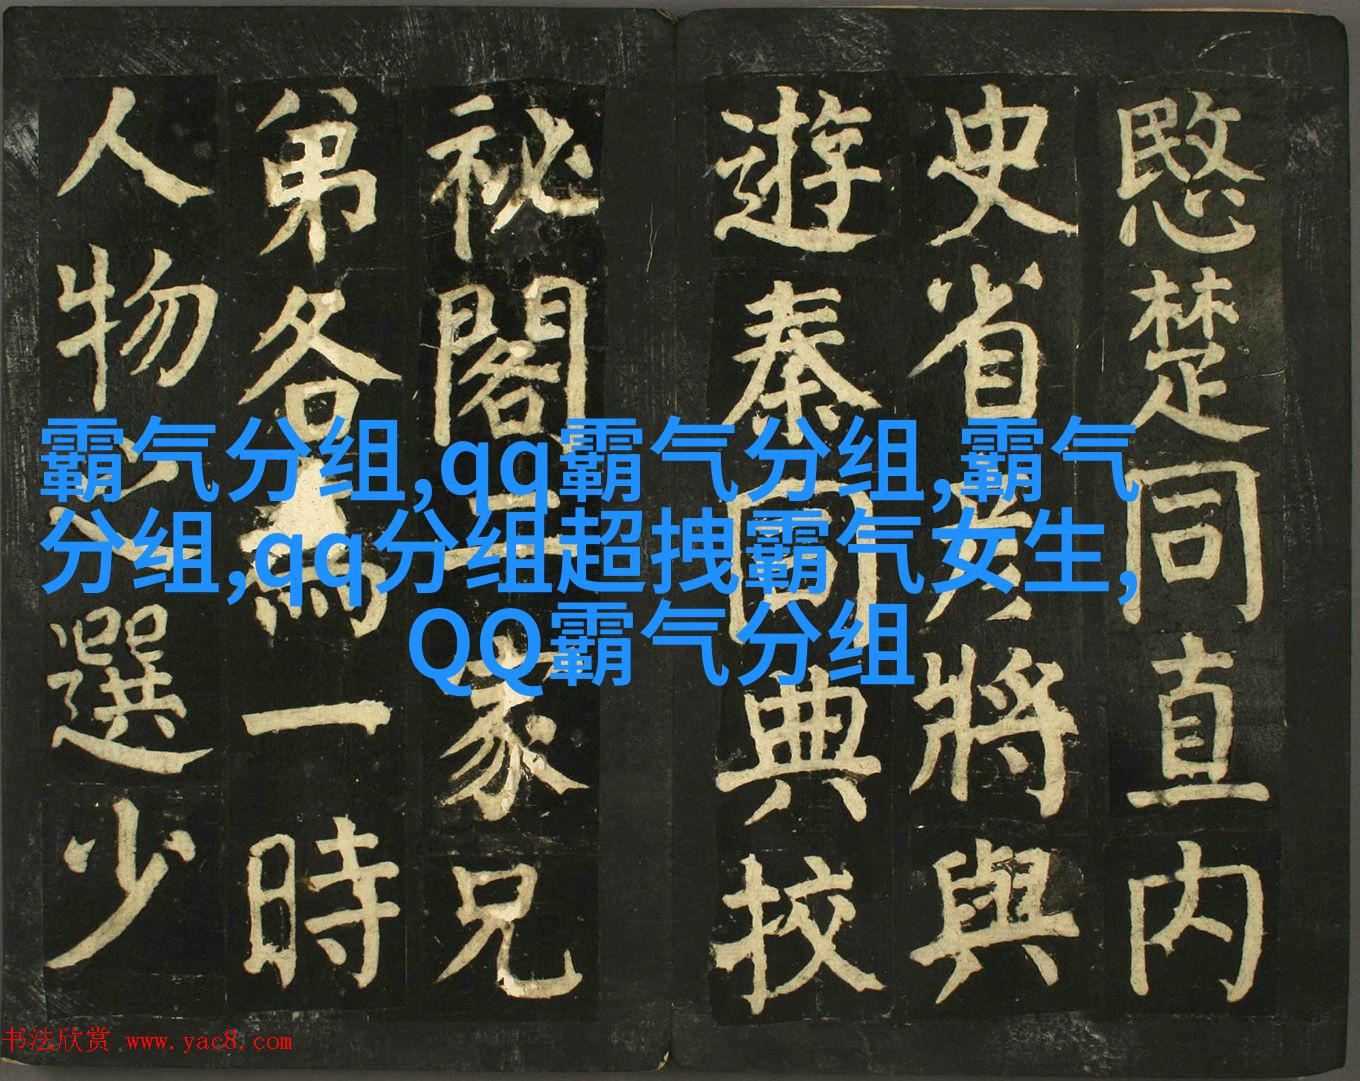 愍楚同直內
史省彥將與
遊秦同典校
祕閣二家兄
弟各為一時
人物之選少
霸气分组,qq霸气分组,霸气
分组,qq分组超拽霸气女生,
QQ霸气分组
书法欣赏 www.yac8.com